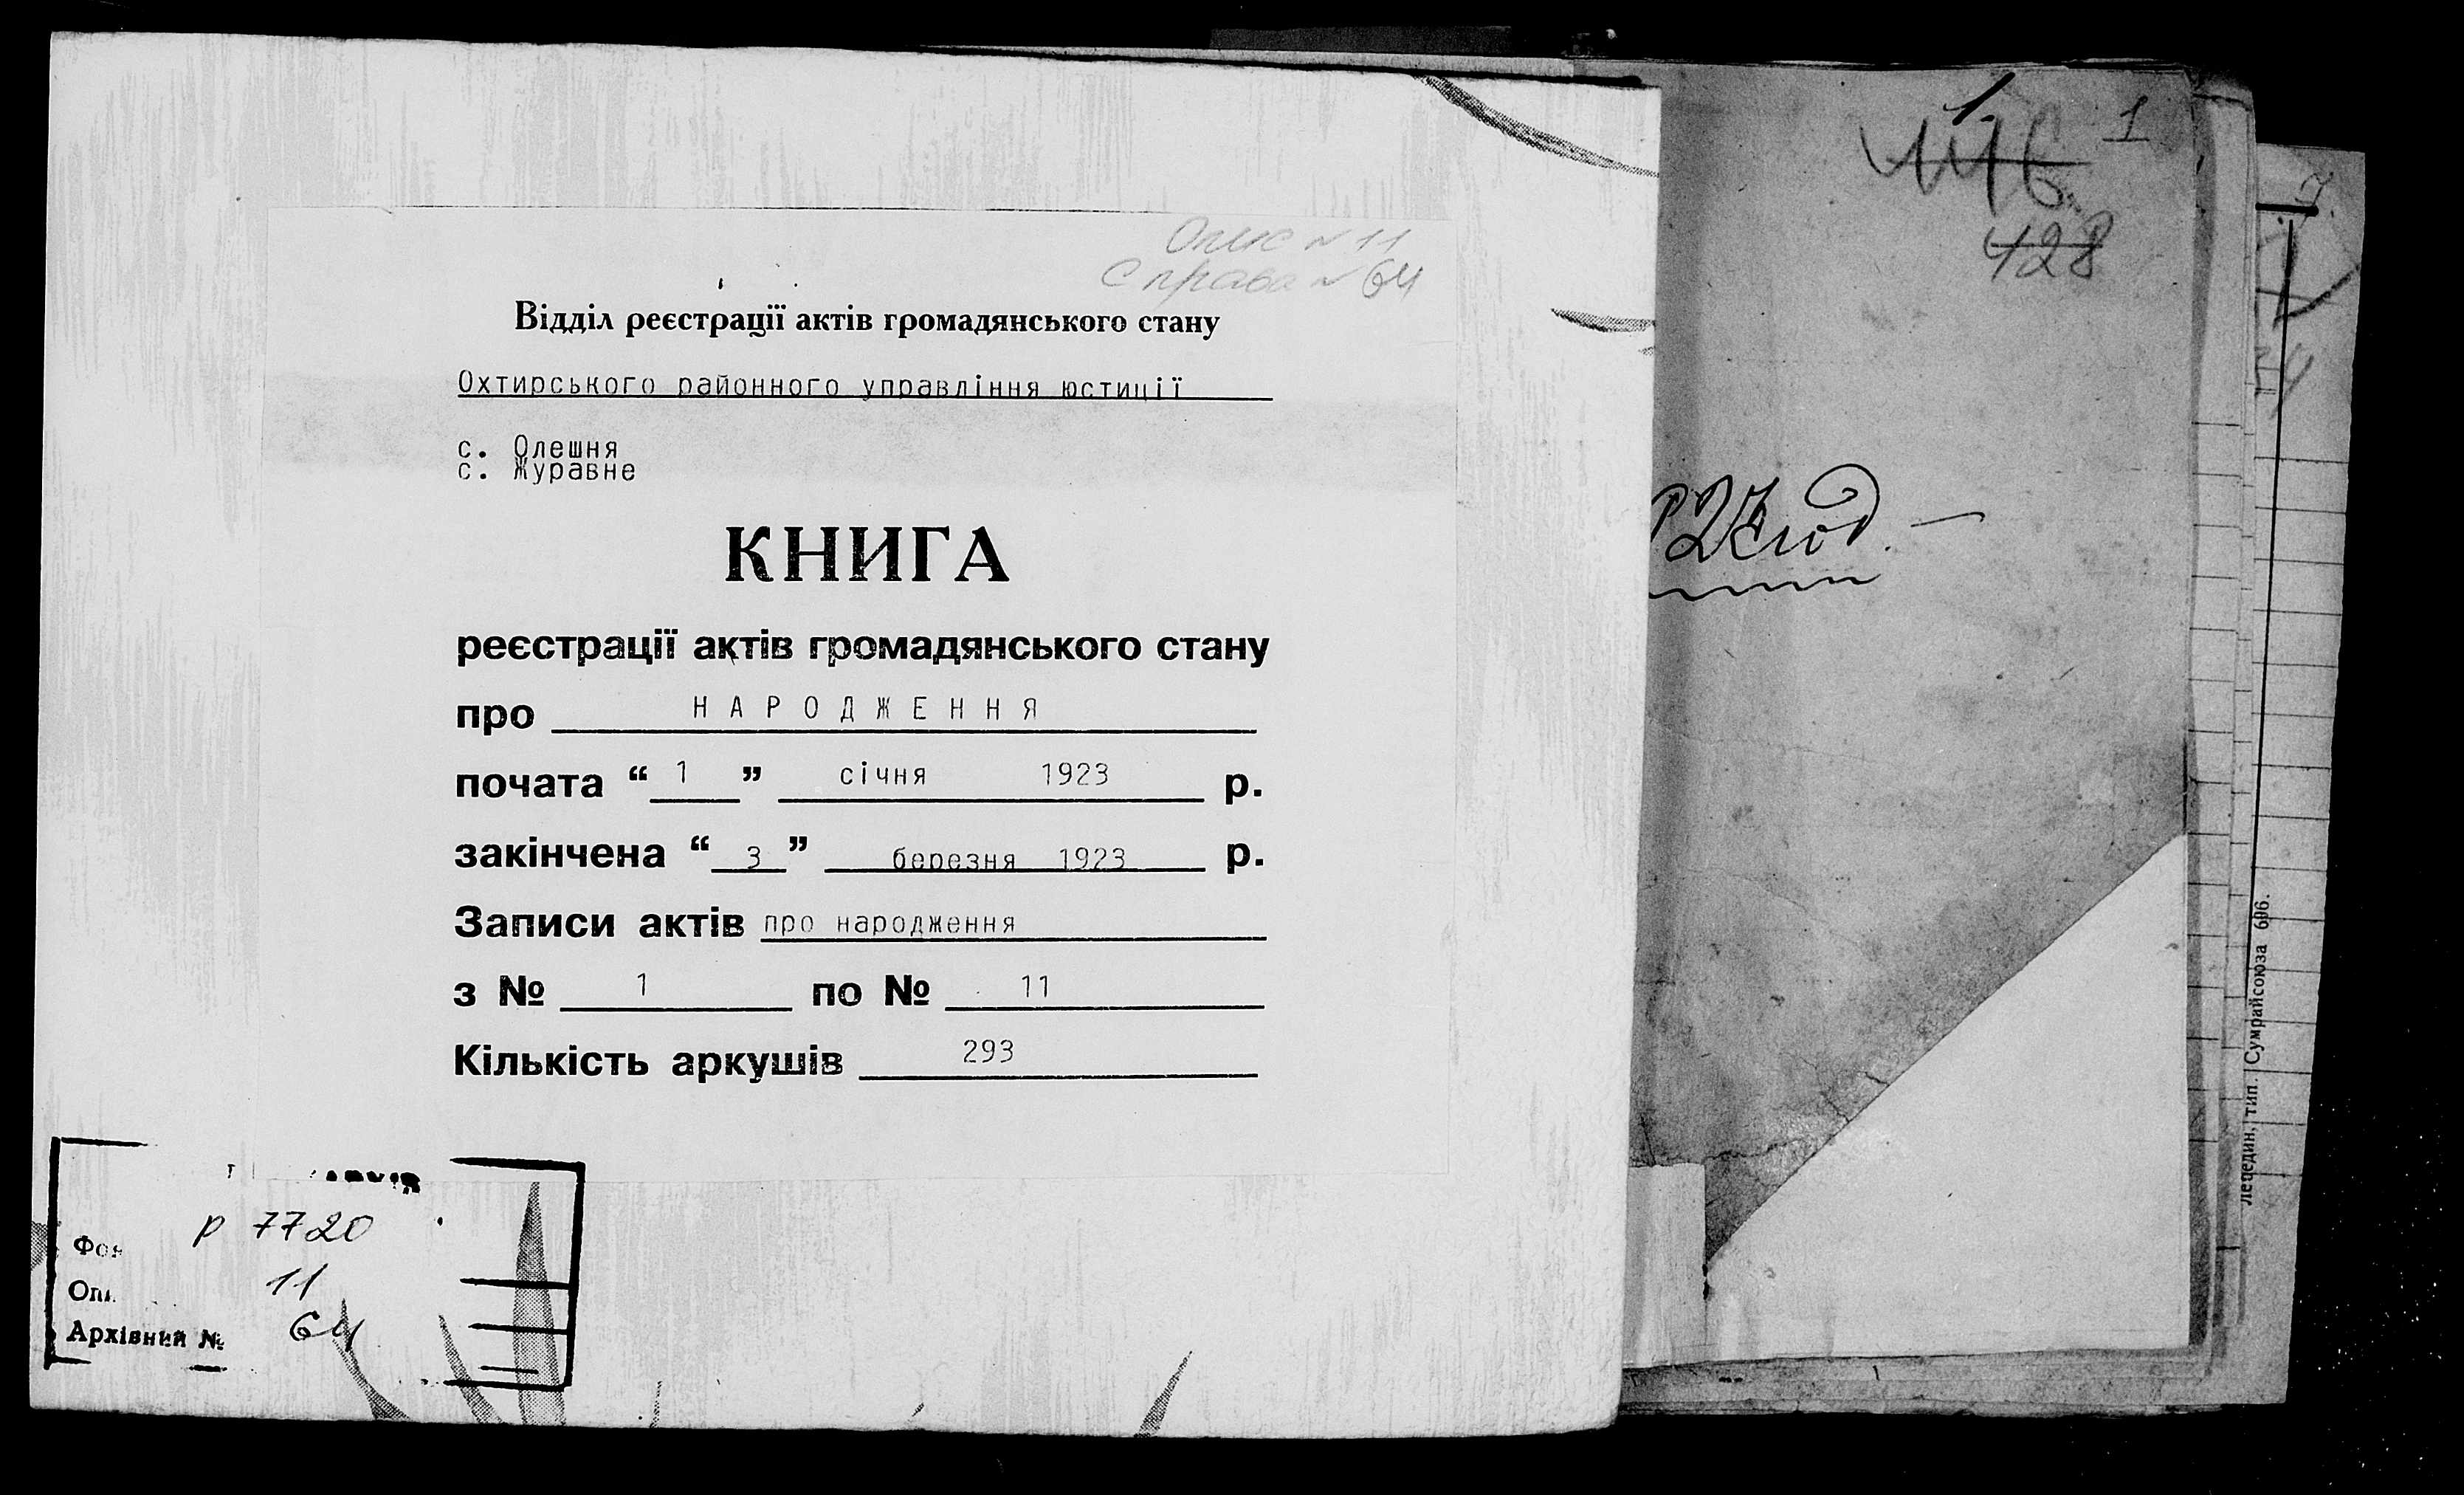 Опис № 11
Справа № 64
Відділ реєстрації актів громадянського стану
Охтирського районного управління юстиції
с. Олешня
с. Журавне
КНИГА
реєстрації актів громадянського стану
про НАРОДЖЕННЯ
почата “ 1 ” січня 1923 р.
закінчена “ 3 ” березня 1923 р.
Записи актів про народження
з № 1 по № 11
Кількість аркушів 293
р 7720
11
Архівний № 64
1
428
Лебедин, тип. Сумрайсоюза 696.